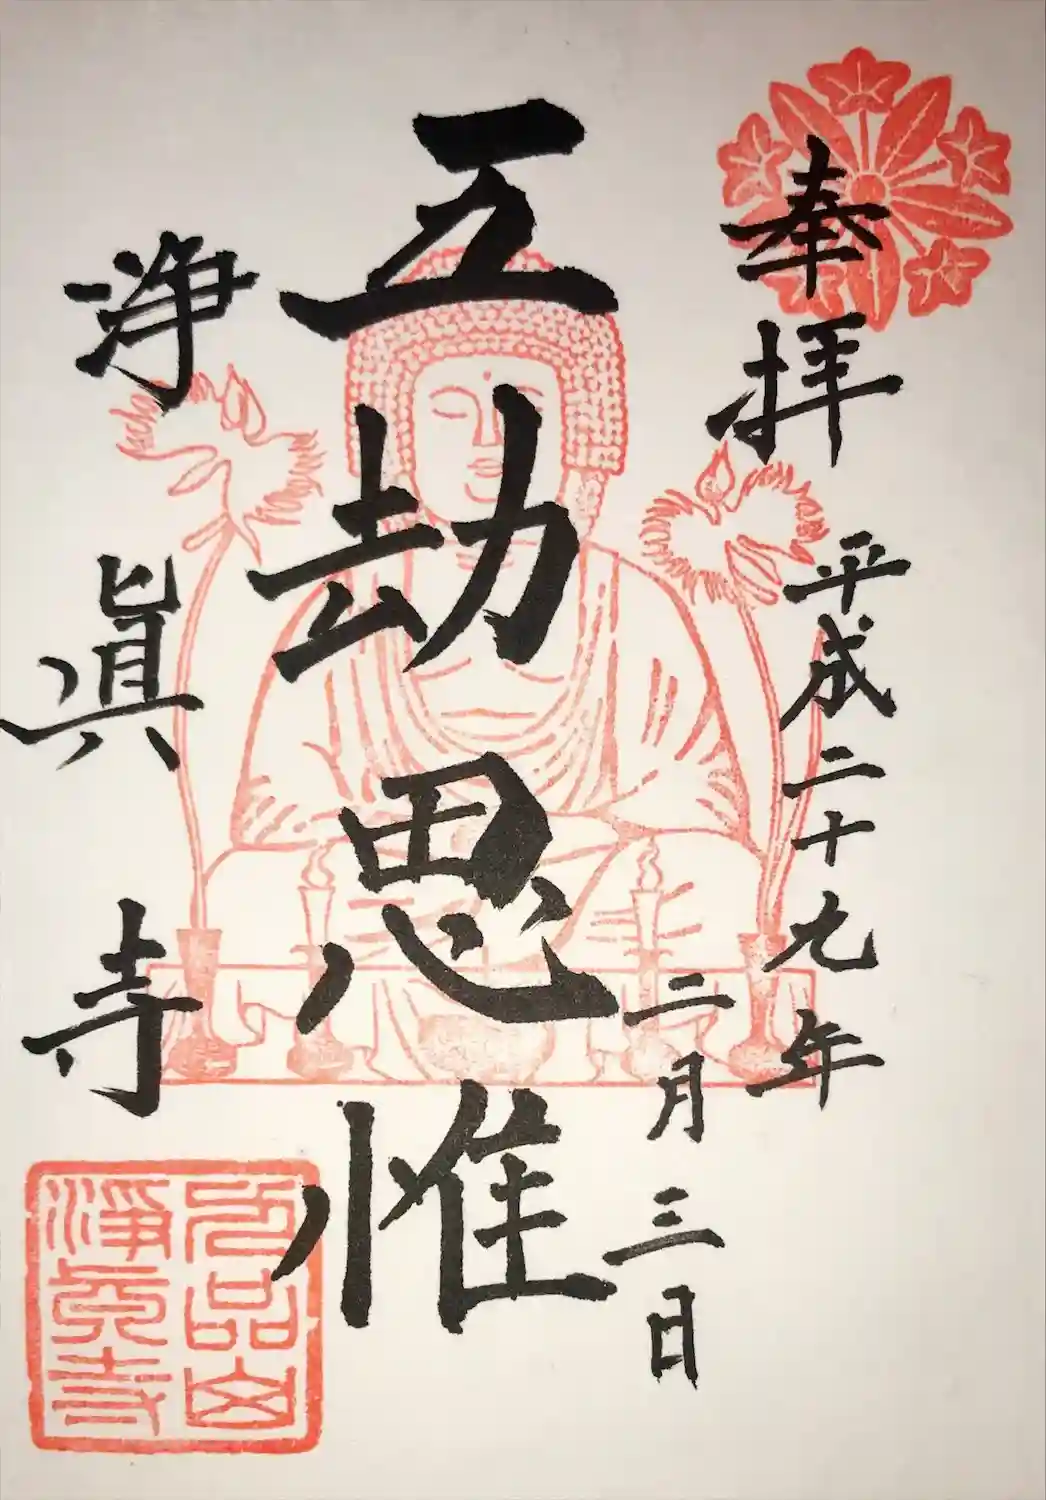 奉拝
平成二十九年
二月三日
五劫思惟
浄眞寺
九品山
淨眞寺